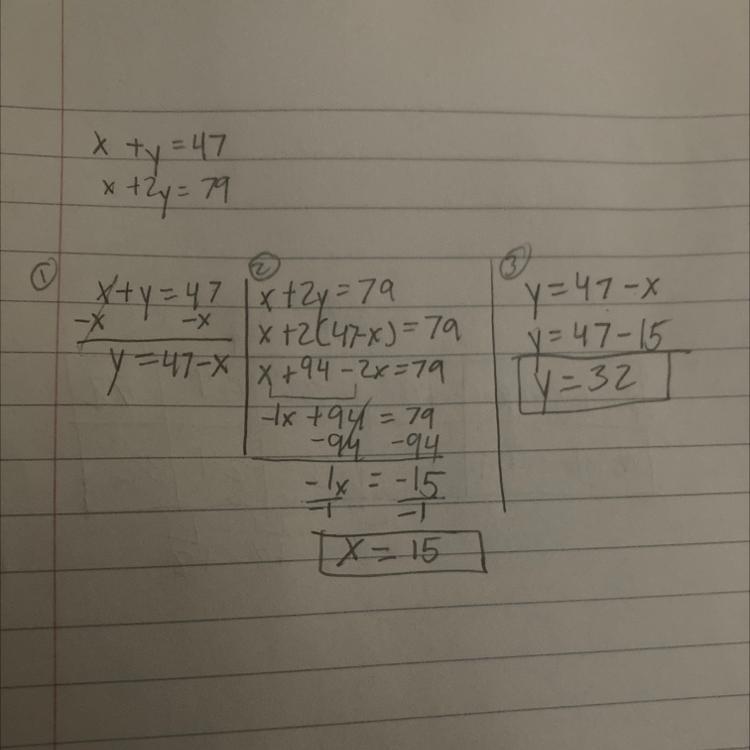 x + y = 47
x + 2y = 79
①
x + y = 47
-x -x
y = 47 - x
②
x + 2y = 79
x + 2(47-x) = 79
x + 94 - 2x = 79
-1x + 94 = 79
-94 -94
-1x = -15
-1 -1
x = 15
③
y = 47 - x
y = 47 - 15
y = 32